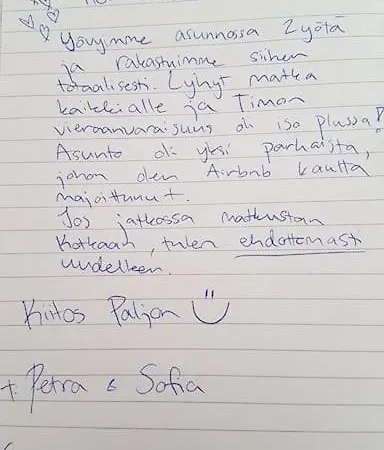 Yövyimme asunnossa 2 yötä
ja rakastuimme siihen
totaalisesti. Lyhyt matka
kaikkialle ja Timon
vieraanvaraisuus oli iso plussa!
Asunto oli yksi parhaista,
johon olen Airbnb kautta
majoittunut.
Jos jatkossa matkustan
Kotkaan, tulen ehdottomasti
uudelleen.
Kiitos Paljon
T. Petra & Sofia